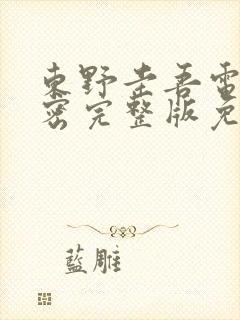 東野圭吾電
密完整版免
藍雕